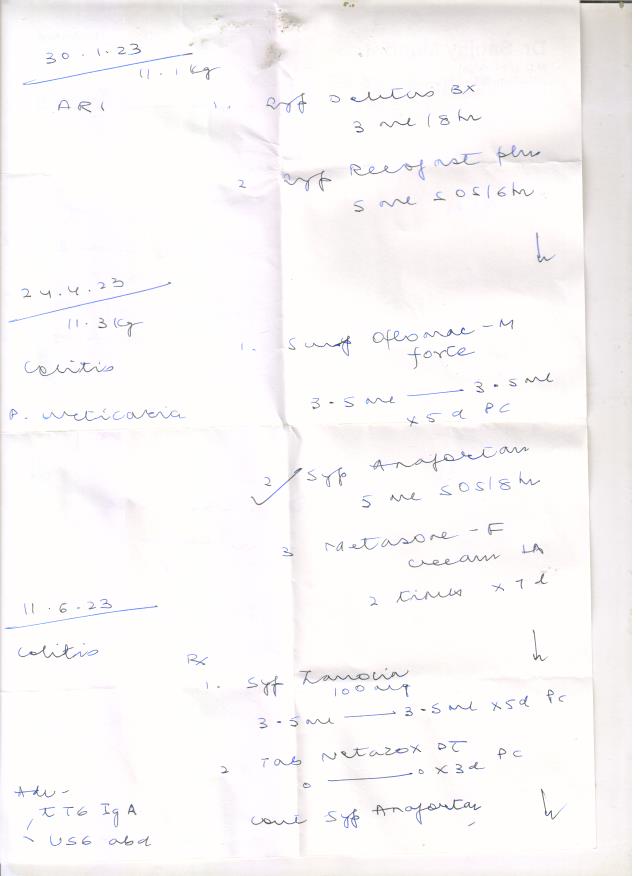 30.1.23
11.1 kg
ARI
1. Syp Delitus BX
3 ml / 8 hr
2 Syp Recofast plus
5 ml SOS/6hr
24.4.23
11.3 kg
Colitis
P. urticaria
1. Susp Oflomac - M
forte
3.5 ml — 3.5 ml
x 5 d PC
2 Syp Anafortan
5 ml SOS/8hr
3 Metasone - F
cream LA
2 times x 7 d
11.6.23
Colitis
Rx
1. Syp Zanocin
100 mg
3.5 ml — 3.5 ml x 5d PC
2 Tab Netazox DT
0 — 0 x 3d PC
cont Syp Anafortan
Adv -
tTG IgA
USG abd